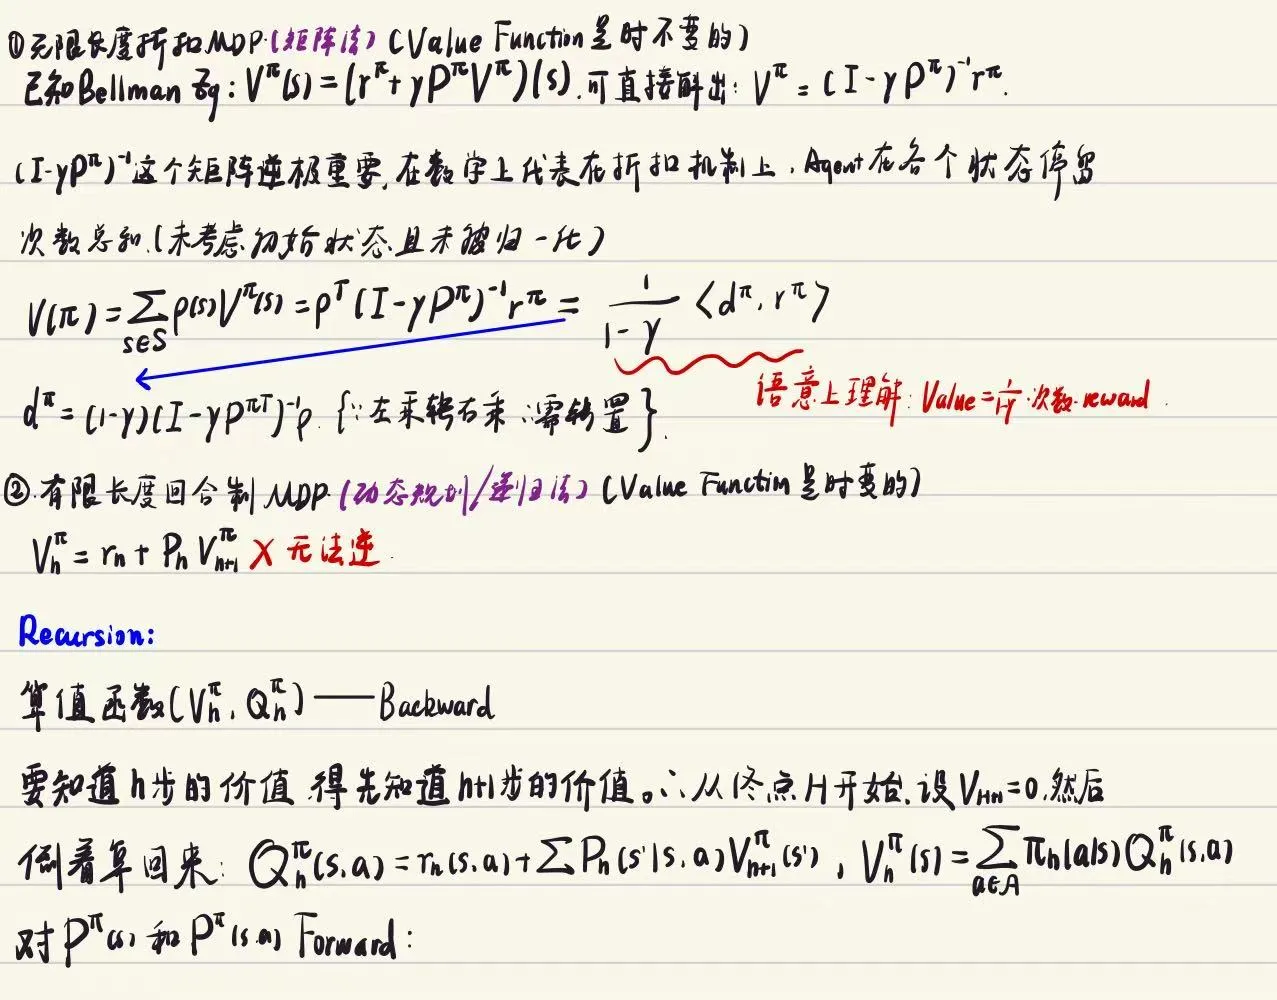 ①无限长度折扣MDP.(矩阵法) (Value Function是时不变的)
已知Bellman Eq: V^π(s) = (r^π + γP^πV^π)(s). 可直接解出: V^π = (I-γP^π)^{-1}r^π.
(I-γP^π)^{-1}这个矩阵逆极重要,在数学上代表在折扣机制上,Agent在各个状态停留
次数总和.(未考虑初始状态且未被归一化)
V(π) = ∑_{s∈S} ρ(s)V^π(s) = ρ^T(I-γP^π)^{-1}r^π = \frac{1}{1-γ}〈d^π, r^π〉
d^π = (1-γ)(I-γP^{πT})^{-1}ρ. {∵左乘转右乘 ∴需转置}.
语意上理解: Value = \frac{1}{1-γ}·次数·reward.
②.有限长度回合制MDP.(动态规划/递归法) (Value Functin是时变的)
V_h^π = r_h + P_h V_{h+1}^π X 无法逆.
Recursion:
算值函数(V_h^π, Q_h^π) —— Backward
要知道h步的价值 得先知道h+1步的价值。∴从终点H开始,设V_{H+1}=0,然后
倒着算回来: Q_h^π(s,a) = r_h(s,a) + ∑P_h(s'|s,a)V_{h+1}^π(s'), V_h^π(s) = ∑_{a∈A} π_h(a|s)Q_h^π(s,a)
对P^π(s)和P^π(s,a) Forward: